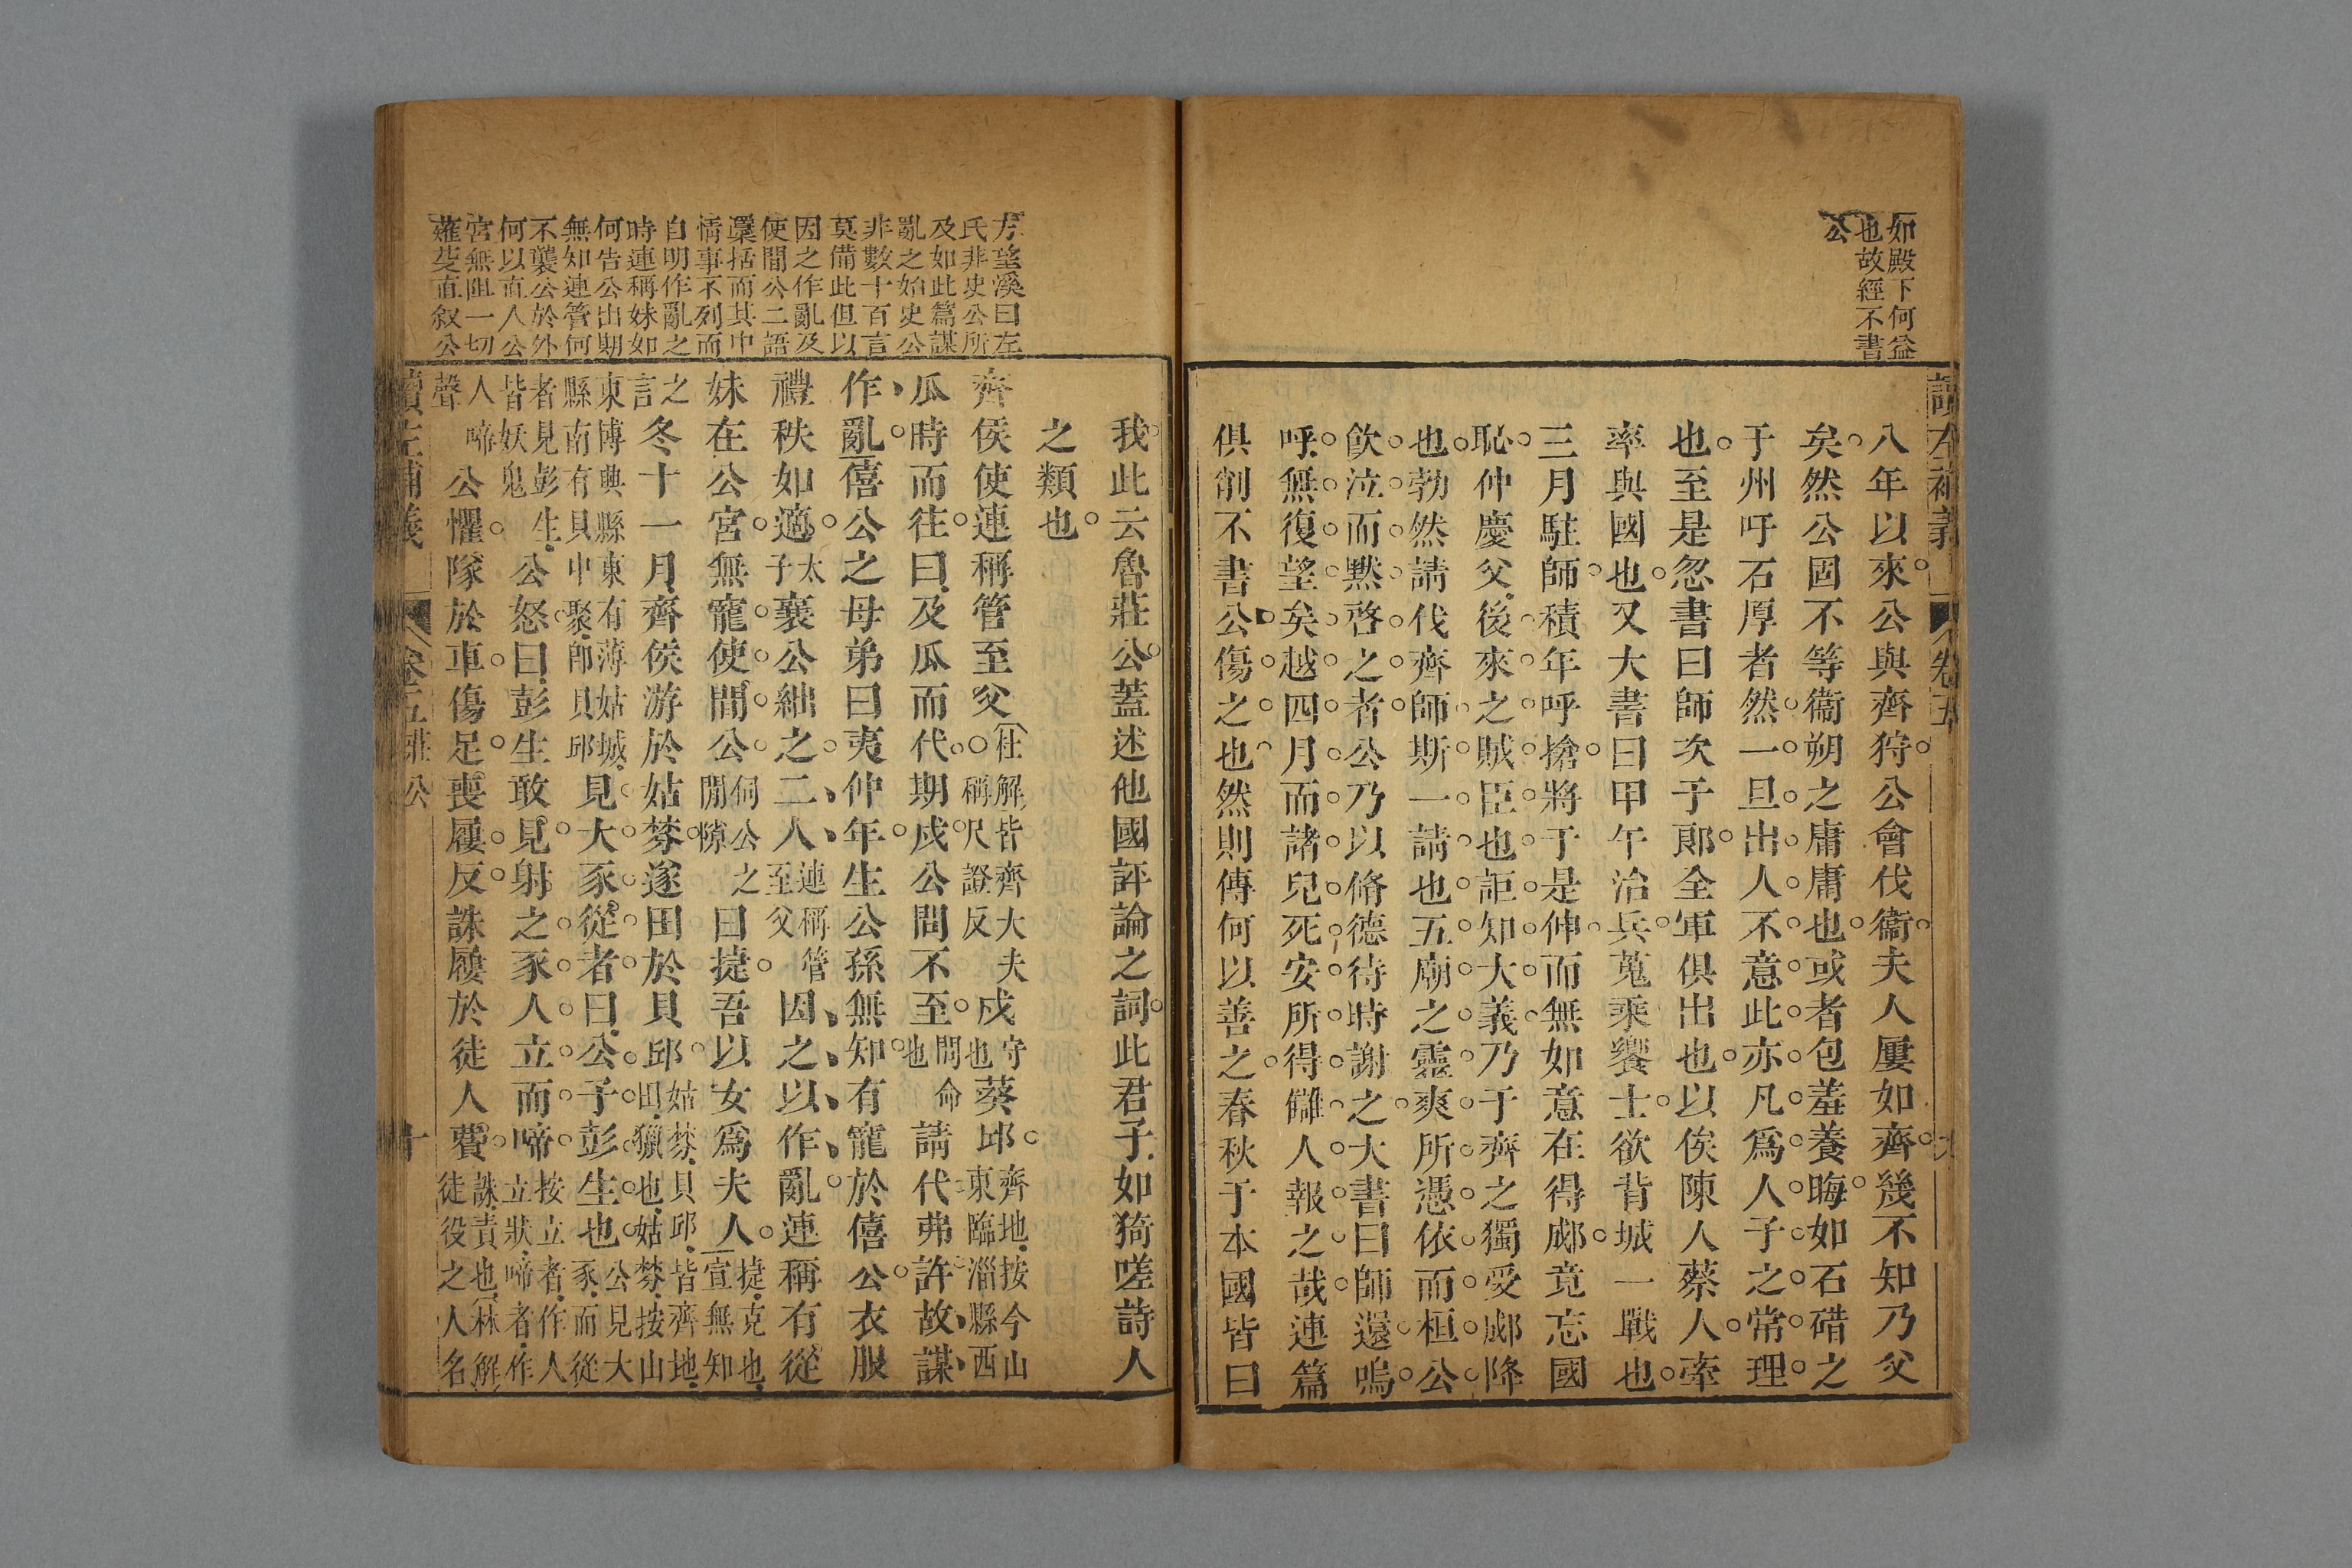 如殿下何益
也故經不書
公
讀左補義
卷五
八年以來公與齊狩公會伐衞夫人屢如齊幾不知乃父
矣然公固不等衞朔之庸庸也或者包羞養晦如石碏之
于州吁石厚者然一旦出人不意此亦凡爲人子之常理
也至是忽書曰師次于郎全軍俱出也以俟陳人蔡人牽
率與國也又大書曰甲午治兵蒐乘饗士欲背城一戰也
三月駐師積年呼搶將于是伸而無如意在得郕竟忘國
恥仲慶父後來之賊臣也詎知大義乃于齊之獨受郕降
也勃然請伐齊師斯一請也五廟之靈爽所憑依而桓公
飮泣而黙啓之者公乃以脩德待時謝之大書曰師還嗚
呼無復望矣越四月而諸兒死安所得讎人報之哉連篇
俱削不書公傷之也然則傳何以善之春秋于本國皆曰
我此云魯莊公蓋述他國評論之詞此君子如猗嗟詩人
之類也
齊侯使連稱管至父杜解皆齊大夫○稱尺證反戍守也葵邱齊地按今山東臨淄縣西
瓜時而往曰及瓜而代期戍公問不至問命也請代弗許故謀
作亂僖公之母弟曰夷仲年生公孫無知有寵於僖公衣服
禮秩如適太子襄公絀之二人連稱管至父因之以作亂連稱有從
妹在公宮無寵使間公伺公之閒隙曰捷吾以女爲夫人捷克也宣無知
之言冬十一月齊侯游於姑棼遂田於貝邱姑棼貝邱皆齊地田獵也姑棼按山
東博興縣東有薄姑城縣南有貝中聚卽貝邱見大豕從者曰公子彭生也公見大豕而從
者見彭生皆妖鬼公怒曰彭生敢見射之豕人立而啼按立者作人立狀啼者作
人啼聲公懼隊於車傷足喪屨反誅屨於徒人費誅責也林解徒役之人名
方望溪曰左
氏非史公所
及如此篇謀
亂之始史公
非數十百言
莫備此但以
因之作亂及
使間公二語
櫽括而其中
情事不列而
自明作亂之
時連稱妹如
何告公出期
無知連管何
不襲公於外
何以直入公
宮無阻一切
薙芟直叙公
讀左補義
卷五莊公
十